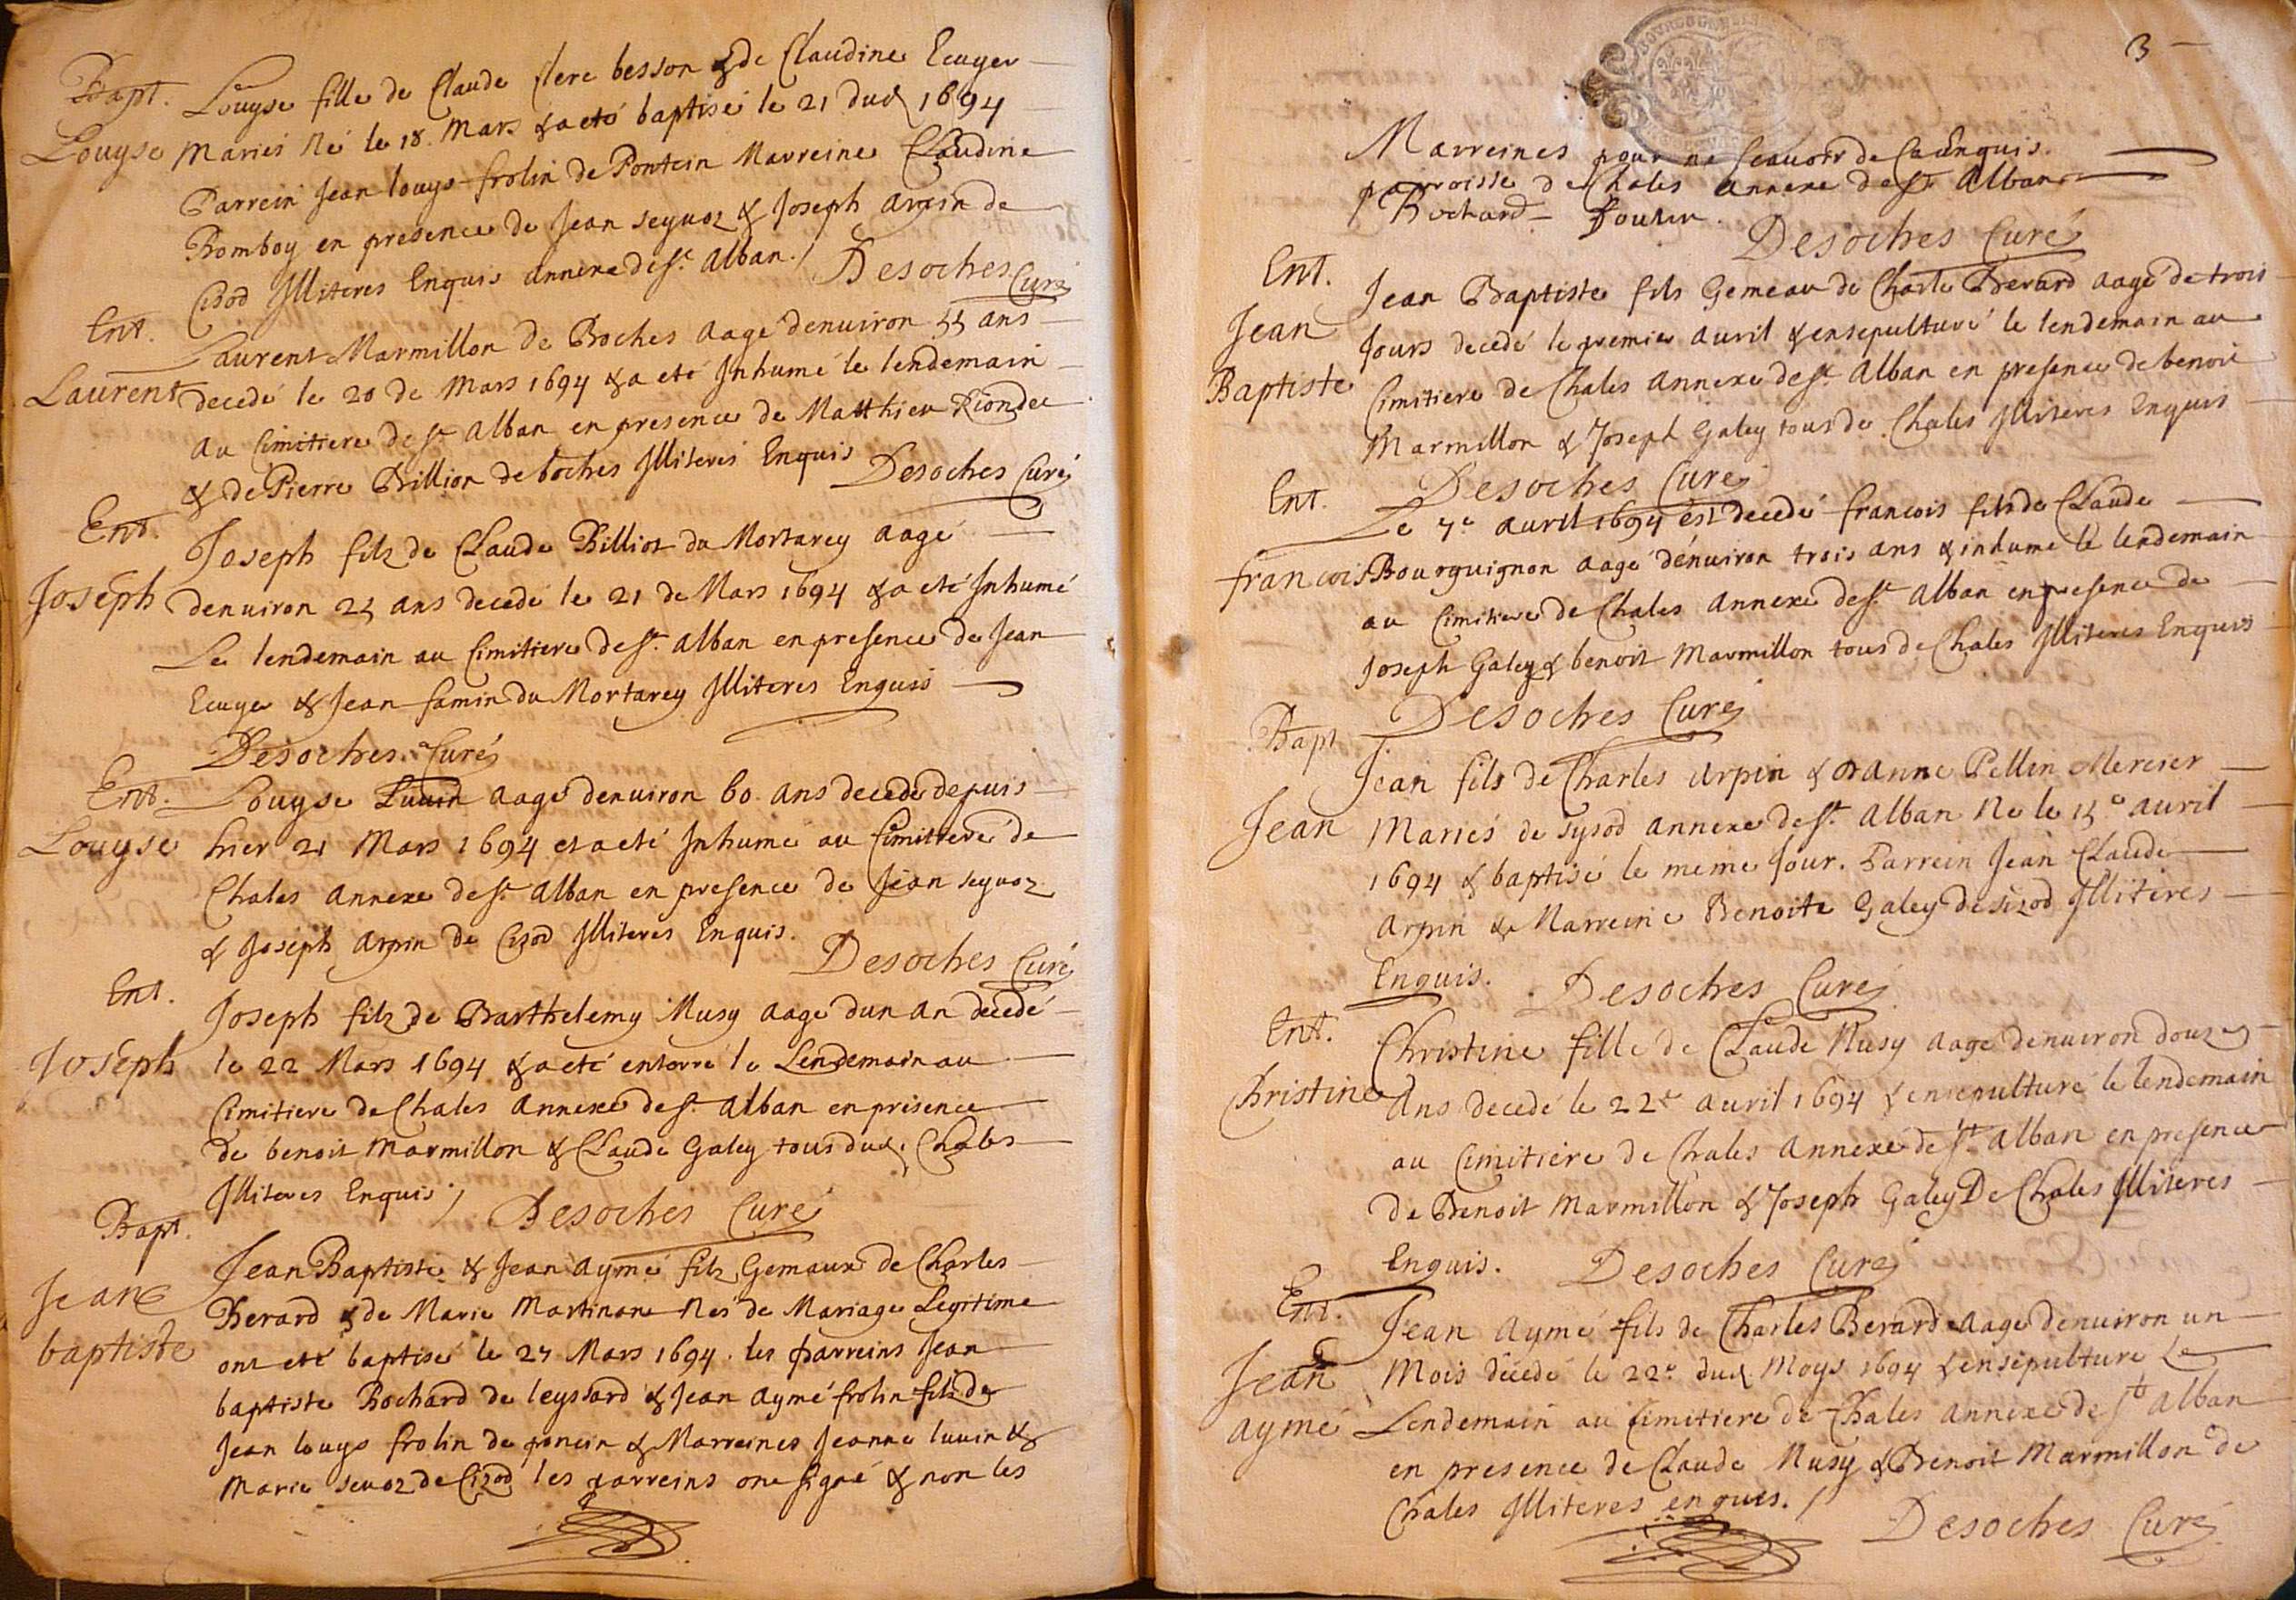 Bapt.
Louyse
Louyse fille de Claude clerc besson & de Claudine Ecuyer
Mariés Né le 18. Mars & a eté baptisé le 21 dud 1694
Parrein Jean louys frolin de Poncin Marreine Claudine
Bomboy en presence de Jean seyuoz & Joseph Arpin de
Cizod Illiteres Enquis annexe de St. Alban. / Desoches Curé
Ent.
Laurent
Laurent Marmillon de Boches aagé denuiron 55 ans
decedé le 20 de Mars 1694 & a eté Inhumé le lendemain
au Cimitiere de St Alban en presence de Matthieu
& de Pierre Brillion de boches Illiteres Enquis Desoches Curé
Ent.
Joseph
Joseph filz de Claude Billioz du Mortarey aagé
denuiron 25 ans decedé le 21 de Mars 1694 & a eté Inhumé
Le lendemain au Cimitiere de St. Alban en presence de Jean
Ecuyer & Jean famin du Mortarey Illiteres Enquis
Desoches Curé
Ent.
Louyse
Louyse Luuin aagé denuiron 60. ans decedé depuis
hier 21 Mars 1694 et a eté Inhumé au Cimittere de
Chales annexe de St. Alban en presence de Jean seyuoz
& Joseph Arpin de Cizod Illiteres Enquis.
Desoches Curé
Ent.
Joseph
Joseph filz de Barthelemy Musy aagé dun an decedé
le 22 Mars 1694 & a eté enterré le Lendemain au
Cimitiere de Chales annexe de St. Alban en presence
de benoit Marmillon & Claude Galey tous dud. Chales
Illiteres Enquis / Desoches Curé
Bapt.
Jean
baptiste
Jean Baptiste & Jean aymé filz Gemaux de Charles
Berard & de Marie Martinand Nés de Mariage Legitime
ont eté baptisé le 27 Mars 1694. les parreins Jean
baptiste Bochard de leyssard & Jean aymé frolin filz de
Jean louys frolin de poncin & Marreines Jeanne luuin &
Marie seuoz de Cizod les parreins ont signé & non les
3
Marreines pour ne scauoir de ce Enquis.
parroisse de Chales annexe de St Alban
Bochard
Desoches Curé
Ent.
Jean
Baptiste
Jean Baptiste fils Gemeau de Charle Berard aagé de trois
Jours decedé le premier auril & ensepulturé le lendemain au
Cimitiere de Chales annexe de St. Alban en presence de benoit
Marmillon & Joseph Galey tous de Chales Illiteres Enquis
Desoches Curé
Ent.
francois
Le 7e auril 1694 est decedé francois fils de Claude
Bourguignon aagé denuiron trois ans & inhumé le lendemain
au Cimitiere de Chales annexe de St. Alban en presence de
Joseph Galey & benoit Marmillon tous de Chales Illiteres Enquis
Desoches Curé
Bapt
Jean
Jean fils de Charles Arpin & danne Pellin Mercier
Mariés de sysod annexe de St. Alban Né le 15e auril
1694 & baptisé le meme Jour. Parrein Jean Claude
Arpin & Marreine Benoite Galey de sizod Illiteres
Enquis. Desoches Curé
Ent.
Christine
Christine fille de Claude Musy aagé denuiron douze
Ans decedé le 22e auril 1694 & ensepulturé le lendemain
au Cimitiere de Chales annexe de St Alban en presence
de Benoit Marmillon & Joseph Galey De Chales Illiteres
Enquis. Desoches Curé
Ent.
Jean
aymé
Jean aymé fils de Charles Berard aagé denuiron un
Mois decedé le 22e dud Moys 1694 & ensepulturé Le
Lendemain au Cimitiere de Chales annexe de St Alban
en presence de Claude Musy & Benoit Marmillon de
Chales Illiteres enquis. /
Desoches Curé